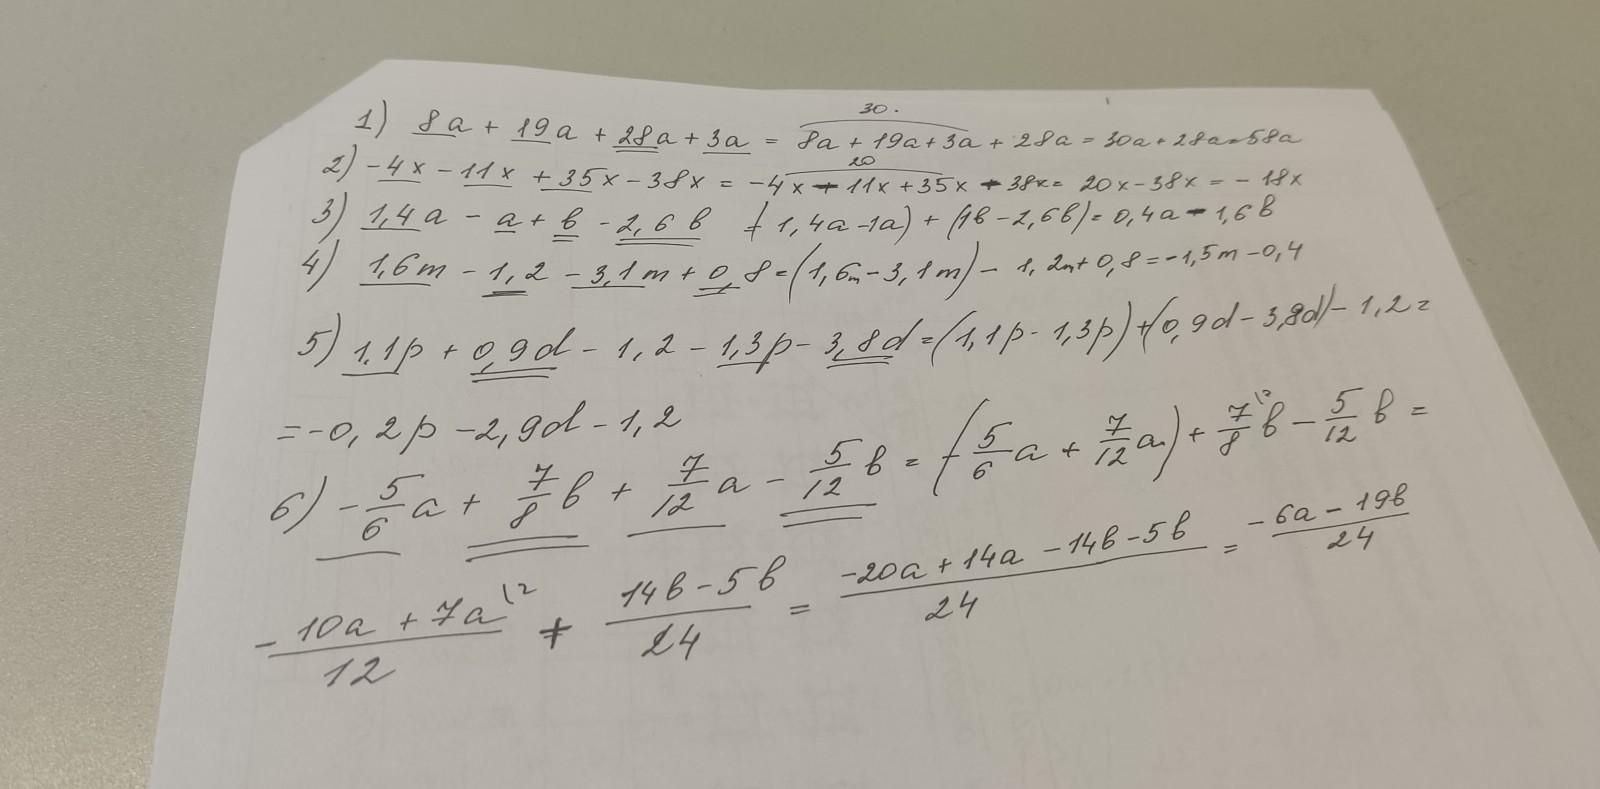 30.
1) 8a + 19a + 28a + 3a = 8a + 19a + 3a + 28a = 30a + 28a = 58a
20
2) -4x - 11x + 35x - 38x = -4x - 11x + 35x - 38x = 20x - 38x = - 18x
3) 1,4a - a + b - 2,6 b = (1,4a - 1a) + (1b - 2,6b) = 0,4a - 1,6b
4) 1,6m - 1,2 - 3,1m + 0,8 = (1,6m - 3,1m) - 1,2m + 0,8 = -1,5m - 0,4
5) 1,1p + 0,9d - 1,2 - 1,3p - 3,8d = (1,1p - 1,3p) + (0,9d - 3,8d) - 1,2 =
= -0,2p - 2,9d - 1,2
6) - 5/6 a + 7/8 b + 7/12 a - 5/12 b = (- 5/6 a + 7/12 a) + 7/8 \2 b - 5/12 b =
(-10a + 7a \2)/12 + (14b - 5b)/24 = (-20a + 14a - 14b - 5b)/24 = (-6a - 19b)/24